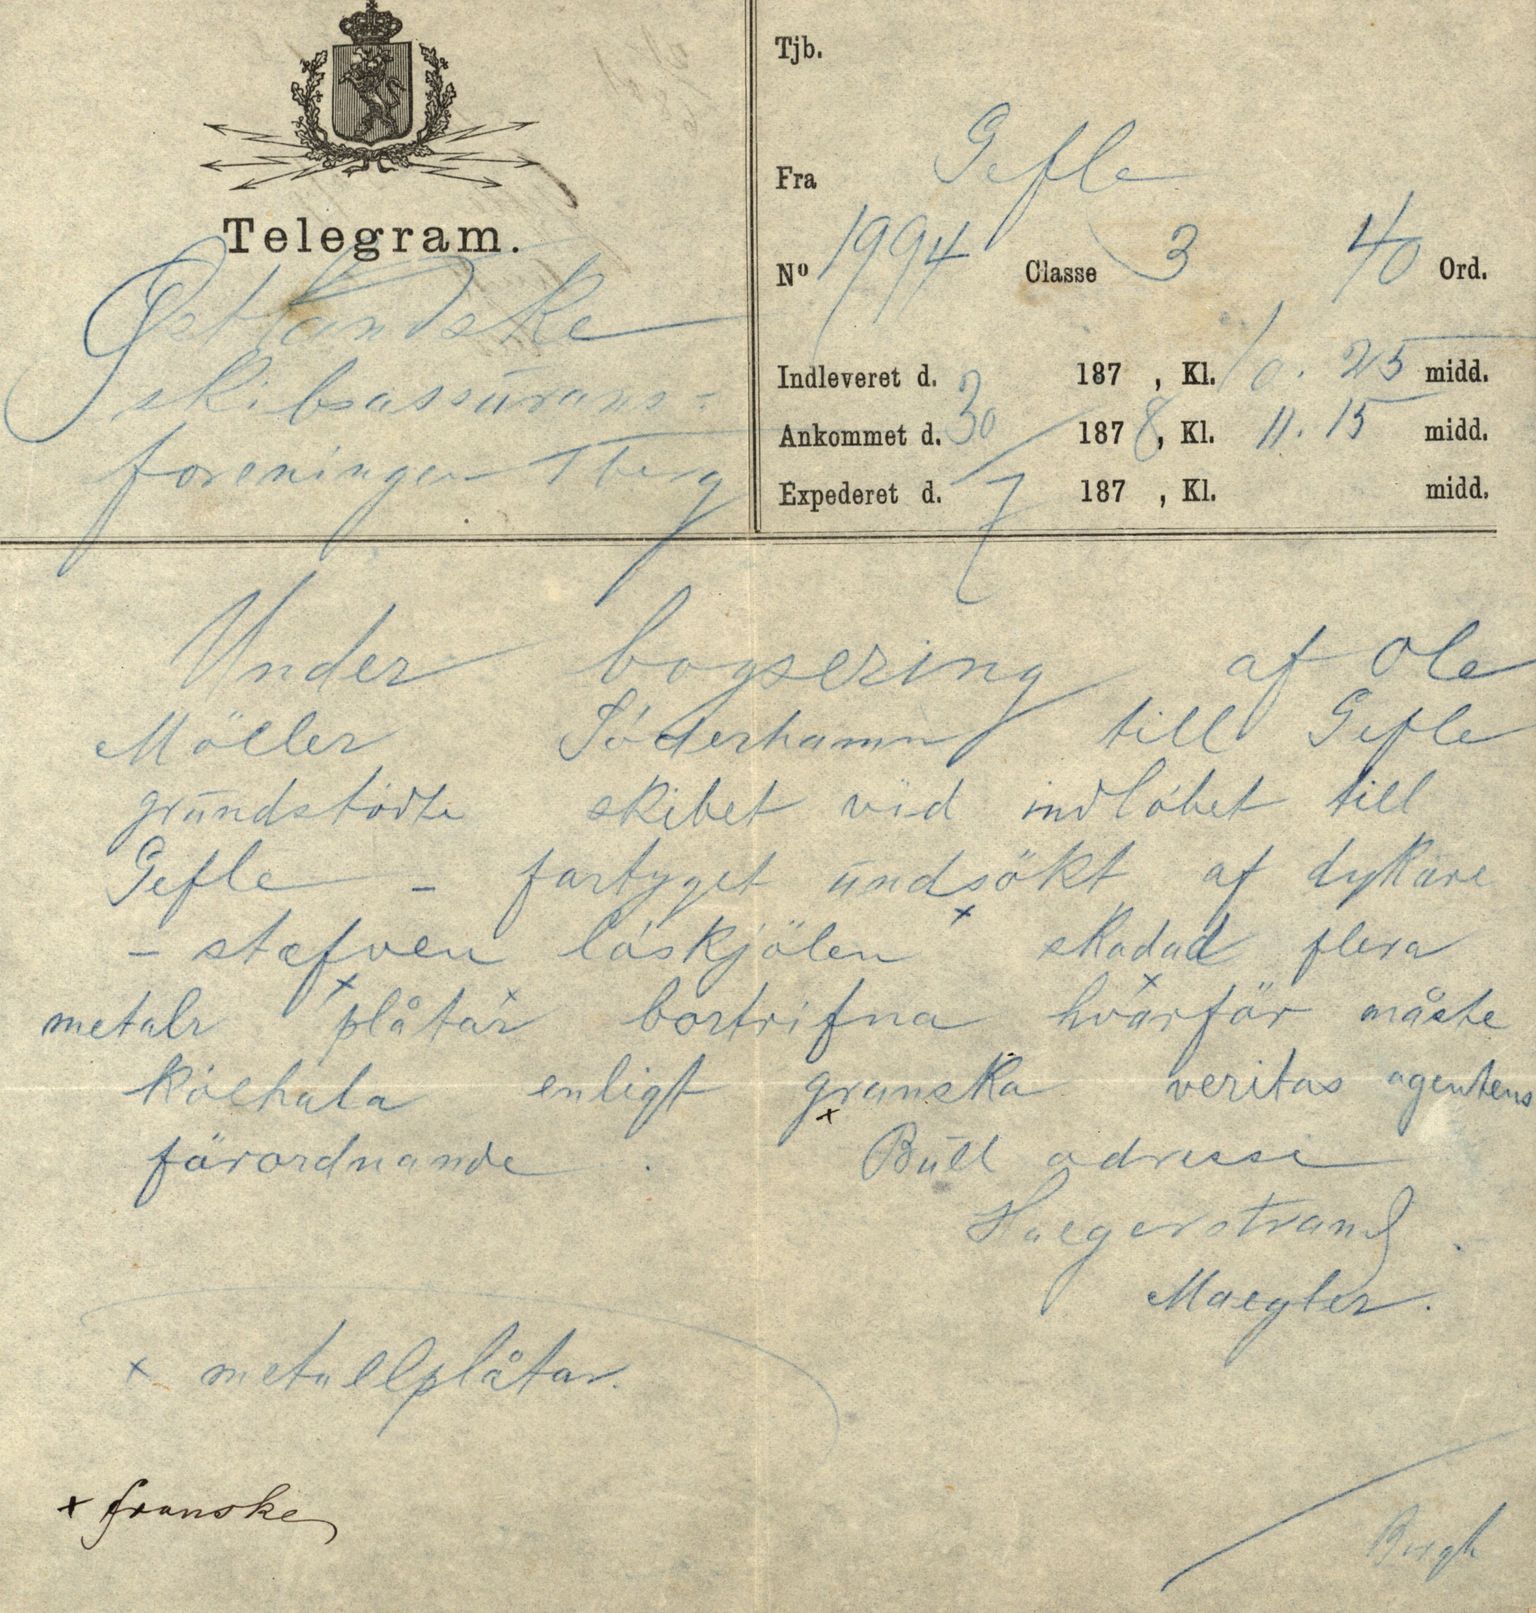 Telegram.
Østlandske
skibsassurans-
foreningen Tberg
Tjb.
Fra Gefle
No 1994 Classe 3 40 Ord.
Indleveret d. 187 , Kl. 10.25 midd.
Ankommet d. 30/7 1878, Kl. 11.15 midd.
Expederet d. 187 , Kl. midd.
Under bogsering af Ole
Möller Söderhamn till Gefle
grundstötte skibet vid indløbet till
Gefle - fartyget undsökt af dykare
- stæfven löskjölen x skadad flera
metalr x plåtar x bortrifna hvarför x måste
kölhala enligt granska x veritas agentens
förordnande . Bull adresse
Haegerstrand .
Maegler.
x metallplåtar.
x franske